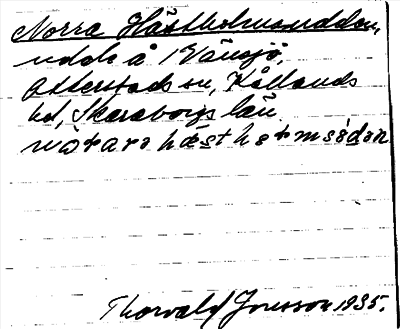 Norra Hästholmsudden,
udde å i Vänsjö,
Otterstads sn, Kållands
hd, Skaraborgs län
nòrara hæsthòłmsùdən
Thorvald Jonsson 1935.